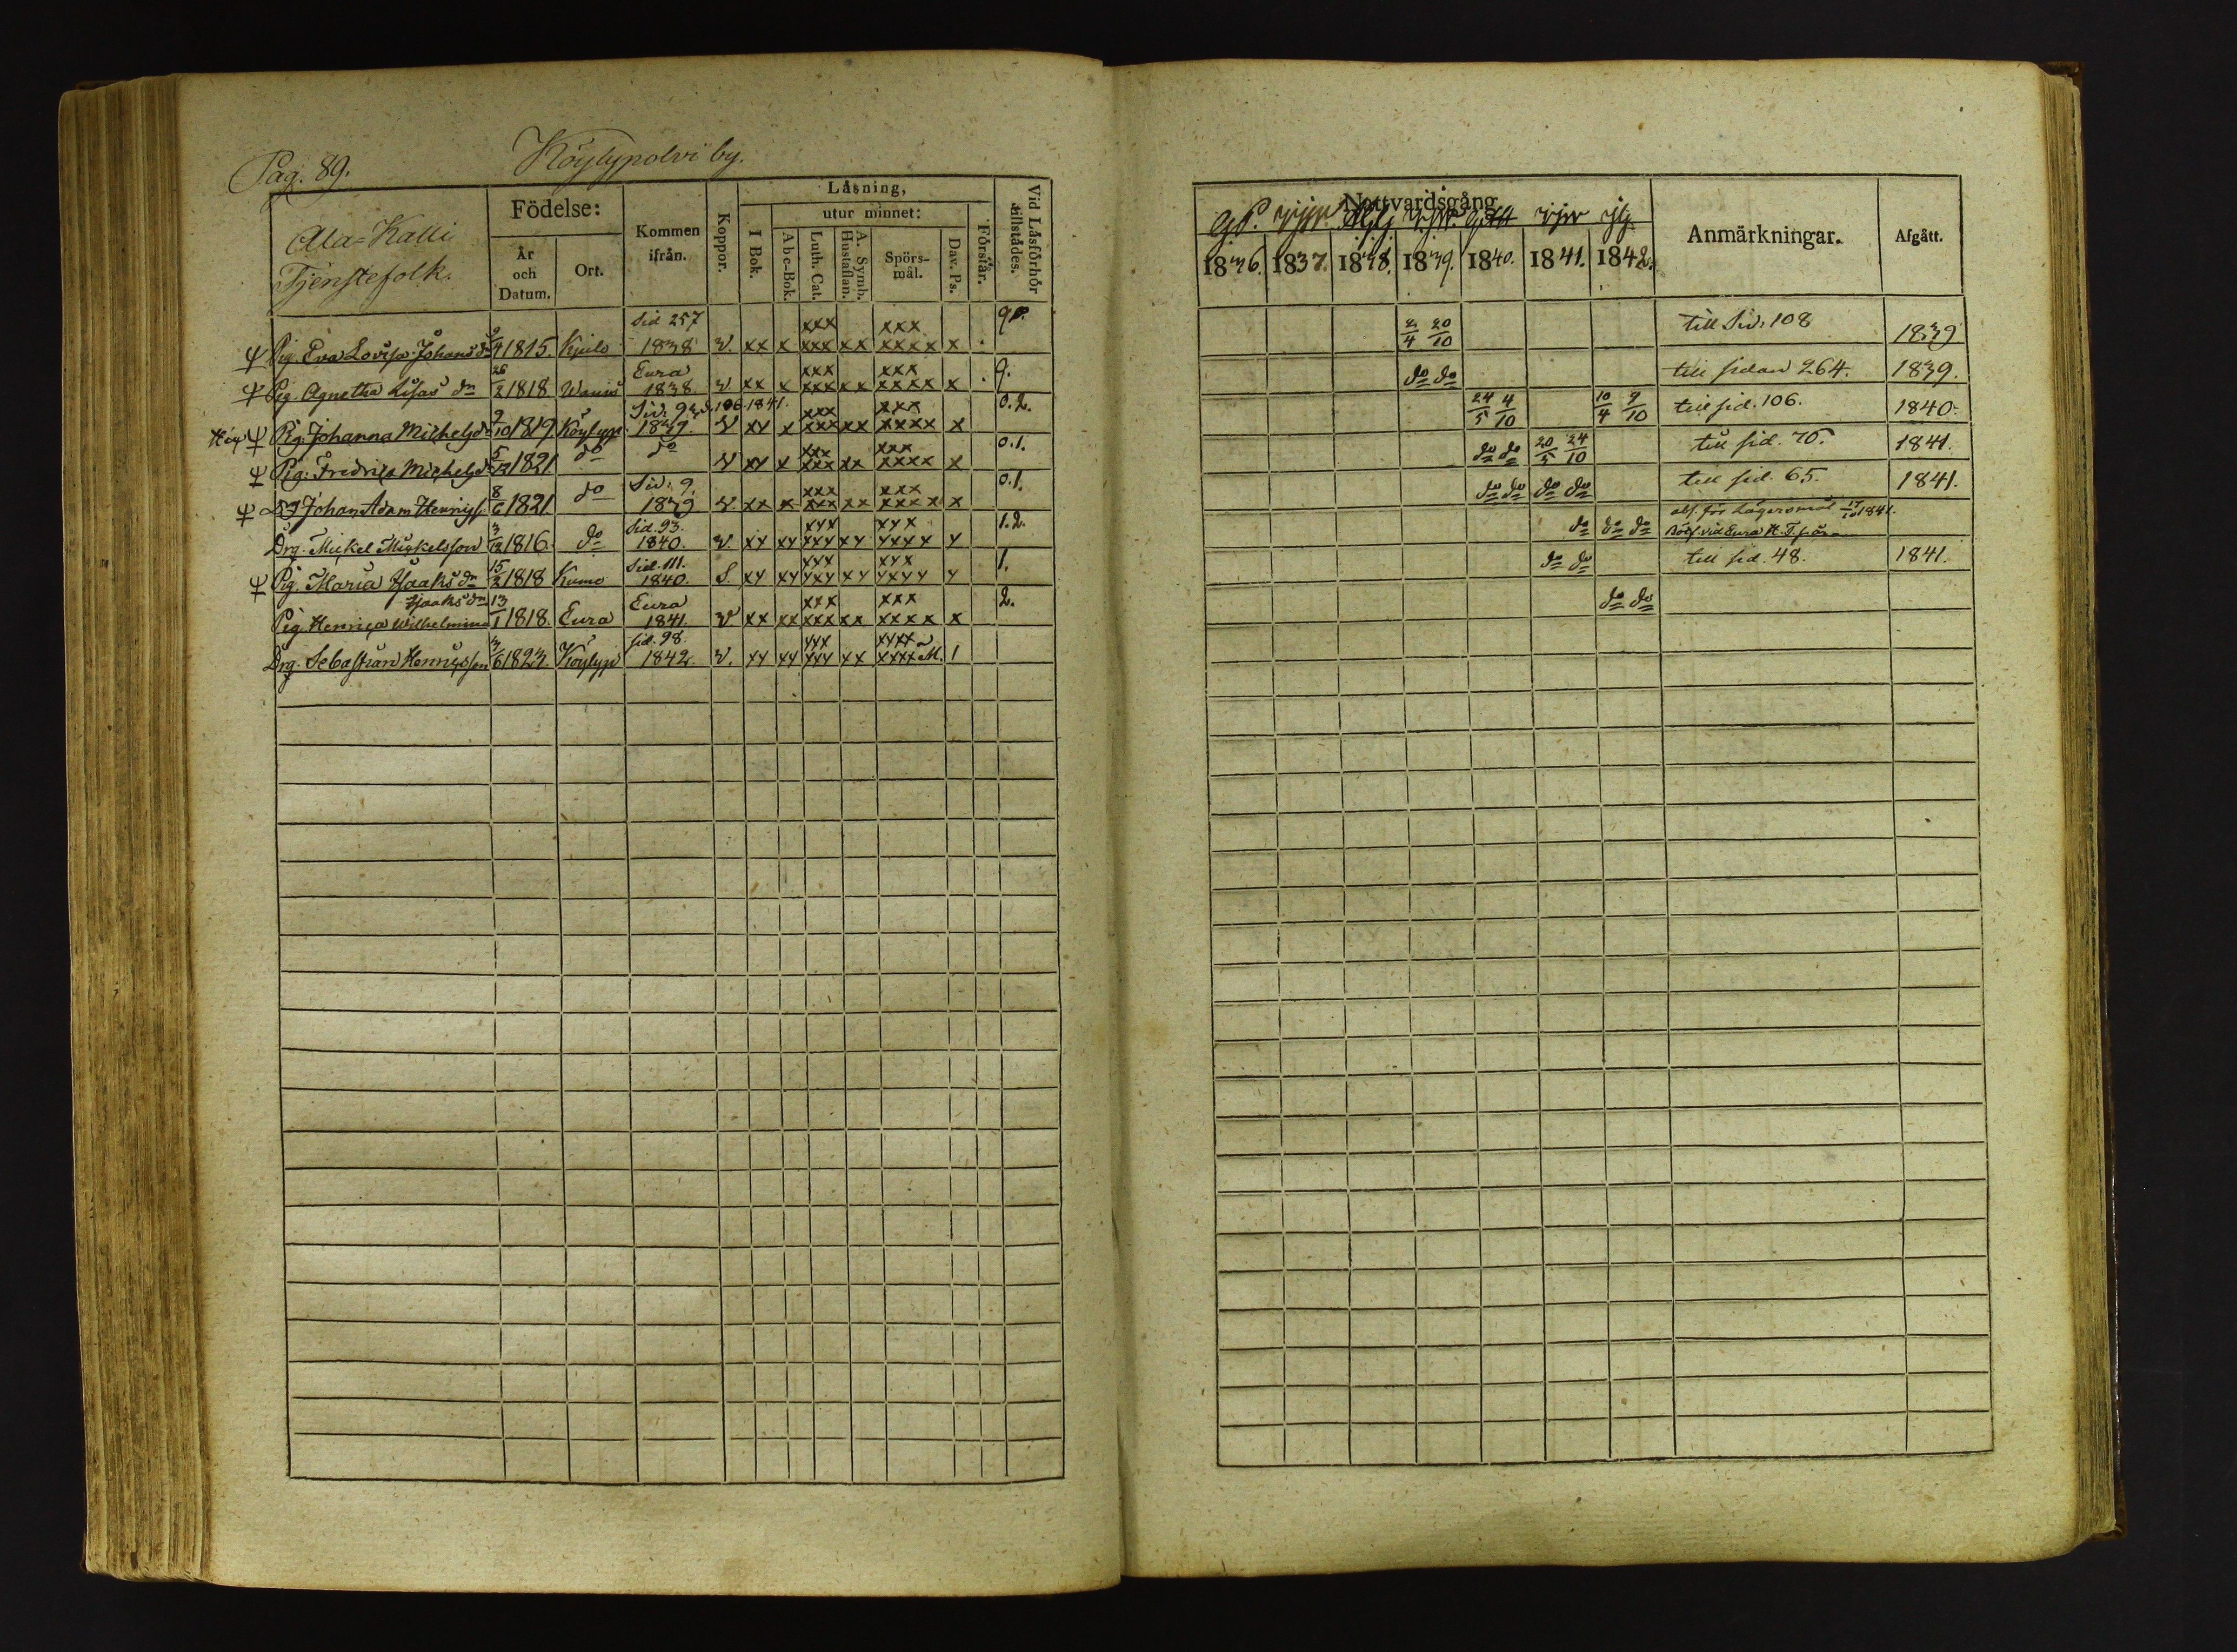 Pag. 89. Köylypolvi by.
Ala-Kalli
Tjenstefolk.
Födelse:
År och Datum.
Ort.
Kommen ifrån.
Koppor.
Läsning,
I Bok.
utur minnet:
Abc-Bok.
Luth. Cat.
A. Symb. Hustaflan.
Spörsmål.
Dav. Ps.
Förstår.
Vid Läsförhör tillstädes.
Nattvardsgång
1836. 1837. 1838. 1839. 1840. 1841. 1842.
Anmärkningar.
Afgått.
Sid 257
Pig. Eva Lovisa Johansdr 1815. Kjulo 1838 v. xx x xxx xxx xx xxx xxxx x 9. 2/4 20/10 till Sid: 108 1839
Eura
Pig. Agnetha Lisas dr 26/2 1818 1838 v. xx x xxx xxx xx xxx xxxx x 9. do do till sidan 264. 1839.
Sid: 9 106.1841.
Pig. Johanna Michelsdr 9/10 1819 Köylyp. 1839. v xx x xxx xxx xx xxx xxxx x 0.2. 24/5 4/10 10/4 9/10 till sid. 106. 1840.
Pig. Fredrica Michelsdr 5/12 1821 do do v xx x xxx xxx xx xxx xxxx x 0.1. do do 20/5 24/10 till sid. 75. 1841.
Sid: 9.
Johan Adam Henriss. 8/6 1821 do 1839 v. xx x xxx xxx xx xxx xxxx x 0.1. do do do do till sid. 65. 1841.
Sid. 93.
Drg. Mickel Mickelsson 3/12 1816. do 1840. v. xx xx xxx xxx xx xxx xxxx x 1.2. do do do abs. för Lägersmål 17/10 1841.
vid Eura H. T.
Sid. 111.
Pig. Maria Isaaks dr 15/2 1818 Kumo 1840. S. xx xx xxx xxx xx xxx xxxx x 1. do do till sid. 48. 1841.
Isaaks dr Eura
Pig. Henrica Wilhelmina 13/1 1818. Eura 1841. v xx xx xxx xxx xx xxx xxxx x 2. do do
sid. 98.
Drg. Sebastian Henriksson 3/6 1823. Köylyp 1842. v. xx xx xxx xxx xx xxxx xxxx 1